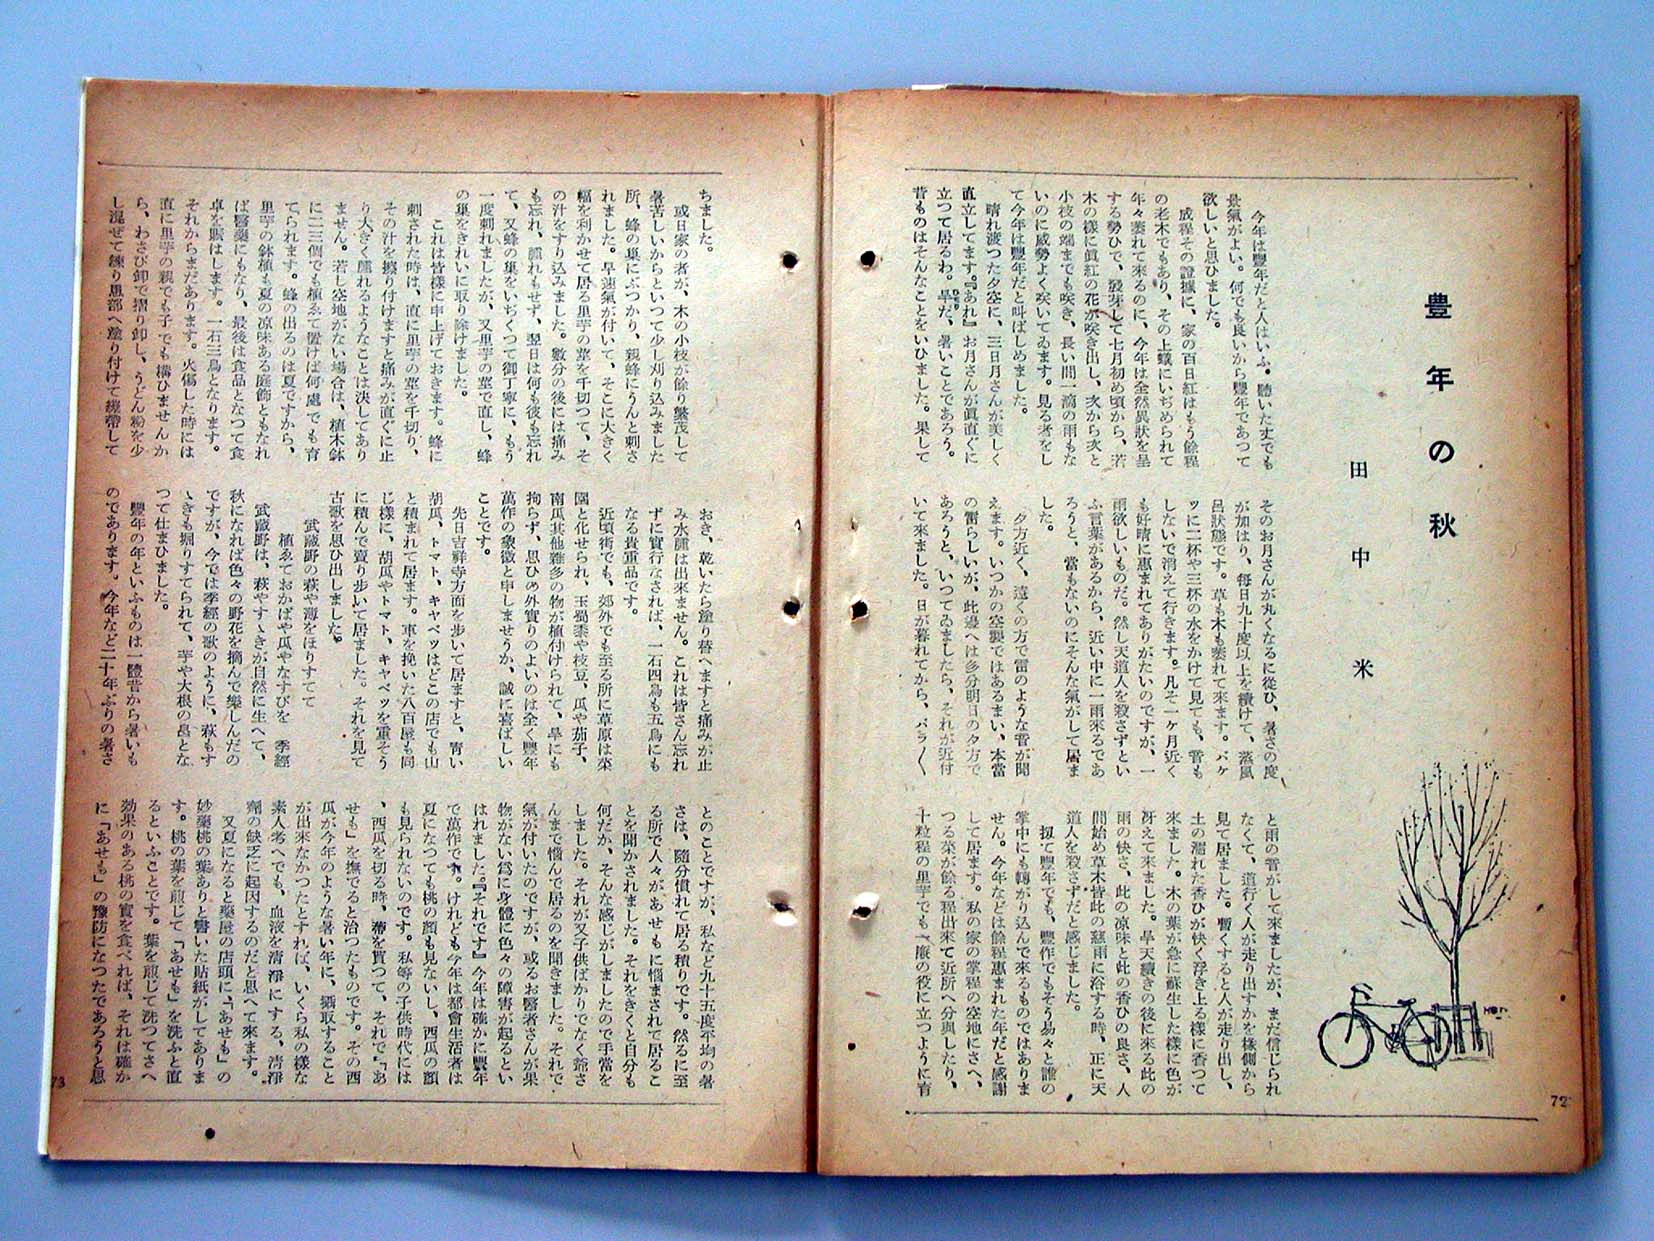 豊年の秋
田中米
今年は豐年だと人はいふ。聽いた丈でも
景氣がよい。何でも良いから豐年であつて
欲しいと思ひました。
成程その證據に、家の百日紅はもう餘程
の老木でもあり、その上蟻にいぢめられて
年々萎れて來るのに、今年は全然異狀を呈
する勢ひで、發芽して七月初め頃から、若
木の樣に眞紅の花が咲き出し、次から次と
小枝の端までも咲き、長い間一滴の雨もな
いのに威勢よく咲いてゐます。見る者をし
て今年は豐年だと叫ばしめました。
晴れ渡つた夕空に、三日月さんが美しく
直立してます。『あれ』お月さんが眞直ぐに
立つて居るわ。旱だ、暑いことであろう。
昔ものはそんなことをいひました。果して
そのお月さんが丸くなるに從ひ、暑さの度
が加はり、每日九十度以上を續けて、蒸風
呂狀態です。草も木も萎れて來ます。バケ
ツに二杯や三杯の水をかけて見ても、音も
しないで消えて行きます。凡そ一ケ月近く
も好晴に惠まれてありがたいのですが、一
雨欲しいものだ。然し天道人を殺さずとい
ふ言葉があるから、近い中に一雨來るであ
ろうと、當もないのにそんな氣がして居ま
した。
夕方近く、遠くの方で雷のような音が聞
えます。いつかの空襲ではあるまい、本當
の雷らしいが、此邊へは多分明日の夕方で
あろうと、いつてゐましたら、それが近付
いて來ました。日が暮れてから、バラ〱
と雨の音がして來ましたが、まだ信じられ
なくて、道行く人が走り出すかを緣側から
見て居ました。暫くすると人が走り出し、
土の濡れた香ひが快く浮き上る樣に香つて
來ました。木の葉が急に蘇生した樣に色が
冴えて來ました。旱天續きの後に來る此の
雨の快さ、此の凉味と此の香ひの良さ、人
間始め草木皆此の慈雨に浴する時、正に天
道人を殺さずだと感じました。
扨て豐年でも、豐作でもそう易々と誰の
掌中にも轉がり込んで來るものではありま
せん。今年などは餘程惠まれた年だと感謝
して居ます。私の家の掌程の空地にさへ、
つる菜が餘る程出來て近所へ分與したり、
十粒程の里芋でも、廉の役に立つように育
72
ちました。
或日家の者が、木の小枝が餘り繁茂して
暑苦しいからといつて少し刈り込みました
所、蜂の巢にぶつかり、親蜂にうんと刺さ
れました。早速氣が付いて、そこに大きく
幅を利かせて居る里芋の莖を千切つて、そ
の汁をすり込みました。數分の後には痛み
も忘れ、腫れもせず、翌日は何も彼も忘れ
て、又蜂の巢をいぢくつて御丁寧に、もう
一度刺れましたが、又里芋の莖で直し、蜂
の巢をきれいに取り除けました。
これは皆樣に申上げておきます。蜂に
刺された時は、直に里芋の莖を千切り、
その汁を擦り付けますと痛みが直ぐに止
り大きく腫れるようなことは決してあり
ません。若し空地がない場合は、植木鉢
に二三個でも植ゑて置けば何處でも育
てられます。蜂の出るのは夏ですから、
里芋の鉢植も夏の凉味ある庭飾ともなれ
ば醫藥にもなり、最後は食品となつて食
卓を賑はします。一石三鳥となります。
それからまだあります。火傷した時には
直に里芋の親でも子でも構ひませんか
ら、わさび卸で摺り卸し、うどん粉を少
し混ぜて練り患部へ塗り付けて繃帶して
おき、乾いたら塗り替へますと痛みが止
み水腫は出來ません。これは皆さん忘れ
ずに實行なされば、一石四鳥も五鳥にも
なる貴重品です。
近頃街でも、郊外でも至る所に草原は菜
園と化せられ、玉蜀黍や枝豆、瓜や茄子、
南瓜其他雜多の物が植付けられて、旱にも
拘らず、思ひの外實りのよいのは全く豐年
萬作の象徵と申しませうか、誠に喜ばしい
ことです。
先日吉祥寺方面を步いて居ますと、靑い
胡瓜、トマト、キャベツはどこの店でも山
と積まれて居ます。車を挽いた八百屋も同
じ樣に、胡瓜やトマト、キャベツを重そう
に積んで賣り步いて居ました。それを見て
古歌を思ひ出しました。
武藏野の萩や薄をほりすてて
植ゑておかばや瓜やなすびを 季經
武藏野は、萩やすゝきが自然に生へて、
秋になれば色々の野花を摘んで樂しんだの
ですが、今では季經の歌のように、萩もす
ゝきも堀りすてられて、芋や大根の畠とな
つて仕まひました。
豐年の年といふものは一體昔から暑いも
のであります。今年など二十年ぶりの暑さ
とのことですが、私など九十五度平均の暑
さは、隨分慣れて居る積りです。然るに至
る所で人々があせもに惱まされて居るこ
とを聞かされました。それをきくと自分も
何だか、そんな感じがしましたので手當を
しました。それが又子供ばかりでなく爺さ
んまで惱んで居るのを聞きました。それで
氣が付いたのですが、或るお醫者さんが果
物がない爲に身體に色々の障害が起るとい
はれました。『それです』今年は確かに豐年
で萬作です。けれども今年は都會生活者は
夏になつても桃の顏も見ないし、西瓜の顏
も見られないのです。私等の子供時代には
、西瓜を切る時、帶を貰つて、それで「あ
せも」を撫でると治つたものです。その西
瓜が今年のような暑い年に、攝取すること
が出來なかつたとすれば、いくら私の樣な
素人考へでも、血液を淸淨にする、淸淨
劑の缺乏に起因するのだと思へて來ます。
又夏になると藥屋の店頭に「あせも」の
妙藥桃の葉ありと書いた貼紙がしてありま
す。桃の葉を煎じて「あせも」を洗ふと直
るといふことです。葉を煎じて洗つてさへ
効果のある桃の實を食べれば、それは確か
に「あせも」の豫防になつたであろうと思
73